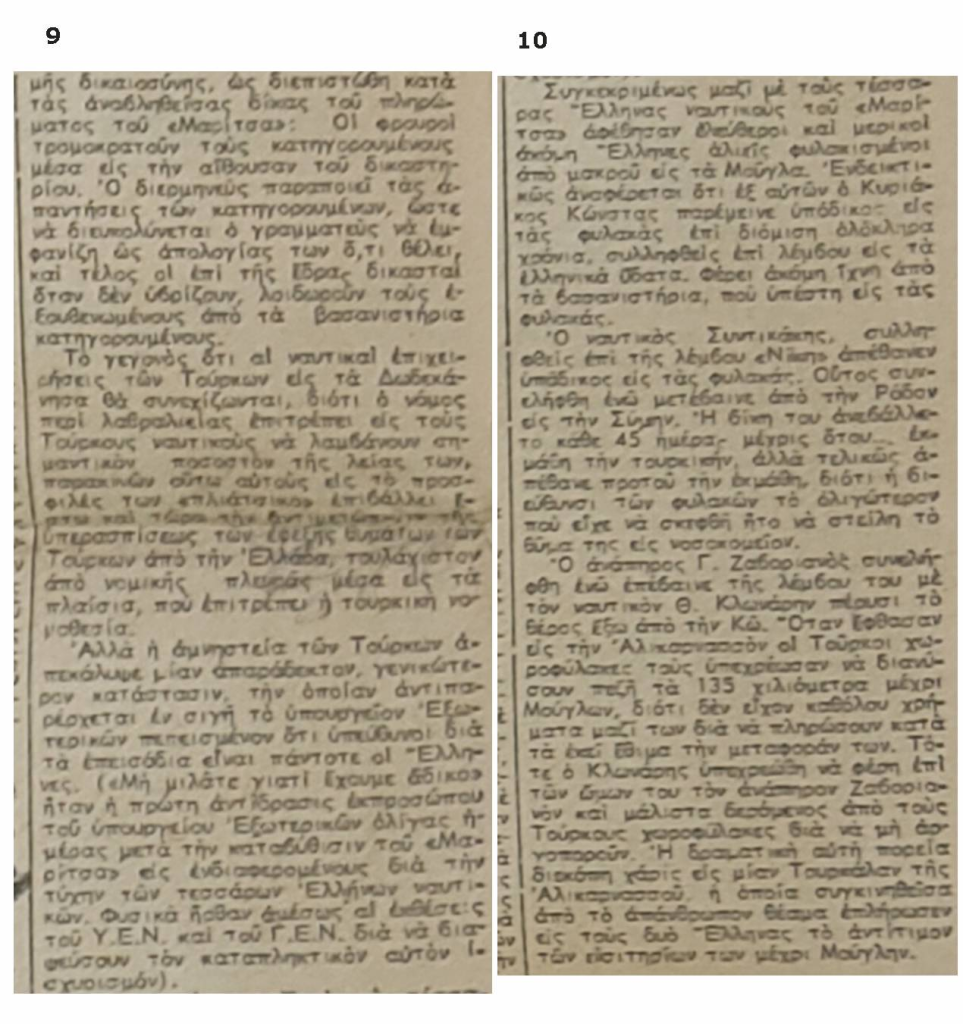 9
μῆς δικαιοσύνης, ὡς διεπιστώθη κατὰ
τὰς ἀναβληθείσας δίκας τοῦ πληρώ-
ματος τοῦ «Μαρίτσα»: Οἱ φρουροὶ
τρομοκρατοῦν τοὺς κατηγορουμένους
μέσα εἰς τὴν αἴθουσαν τοῦ δικαστη-
ρίου. Ὁ διερμηνεὺς παραποιεῖ τὰς ἀ-
παντήσεις τῶν κατηγορουμένων, ὥστε
νὰ διευκολύνεται ὁ γραμματεὺς νὰ ἐμ-
φανίζη ὡς ἀπολογίας των ὅ,τι θέλει,
καὶ τέλος οἱ ἐπὶ τῆς ἕδρας δικασταὶ
ὅταν δὲν ὑβρίζουν, λοιδωροῦν τοὺς ἐ-
ξουθενωμένους ἀπὸ τὰ βασανιστήρια
κατηγορουμένους.
Τὸ γεγονὸς ὅτι αἱ ναυτικαὶ ἐπιχει-
ρήσεις τῶν Τούρκων εἰς τὰ Δωδεκά-
νησα θὰ συνεχίζωνται, διότι ὁ νόμος
περὶ λαθραλιείας ἐπιτρέπει εἰς τοὺς
Τούρκους ναυτικοὺς νὰ λαμβάνουν ση-
μαντικὸν ποσοστὸν τῆς λείας των,
παρακινῶν οὕτω αὐτοὺς εἰς τὸ προσ-
φιλές των «πλιάτσικο» ἐπιβάλλει ἔ-
στω καὶ τώρα τὴν ἀντιμετώπισιν τῆς
ὑπερασπίσεως τῶν ἐφεξῆς θυμάτων τῶν
Τούρκων ἀπὸ τὴν Ἑλλάδα, τουλάχιστον
ἀπὸ νομικῆς πλευρᾶς μέσα εἰς τὰ
πλαίσια, ποὺ ἐπιτρέπει ἡ τουρκικὴ νο-
μοθεσία.
Ἀλλὰ ἡ ἀμνηστεία τῶν Τούρκων ἀ-
πεκάλυψε μίαν ἀπαράδεκτον, γενικώτε-
ρον κατάστασιν, τὴν ὁποίαν ἀντιπα-
ρέρχεται ἐν σιγῇ τὸ ὑπουργεῖον Ἐξω-
τερικῶν πεπεισμένον ὅτι ὑπεύθυνοι διὰ
τὰ ἐπεισόδια εἶναι πάντοτε οἱ Ἕλλη-
νες. («Μὴ μιλᾶτε γιατὶ ἔχουμε ἄδικο»
ἦταν ἡ πρώτη ἀντίδρασις ἐκπροσώπου
τοῦ ὑπουργείου Ἐξωτερικῶν ὀλίγας ἡ-
μέρας μετὰ τὴν καταβύθισιν τοῦ «Μα-
ρίτσα» εἰς ἐνδιαφερομένους διὰ τὴν
τύχην τῶν τεσσάρων Ἑλλήνων ναυτι-
κῶν. Φυσικὰ ἦρθαν ἀμέσως αἱ ἐκθέσεις
τοῦ Υ.Ε.Ν. καὶ τοῦ Γ.Ε.Ν. διὰ νὰ δια-
ψεύσουν τὸν καταπληκτικὸν αὐτὸν ἰ-
σχυρισμόν).
10
Συγκεκριμένως μαζὶ μὲ τοὺς τέσσα-
ρας Ἕλληνας ναυτικοὺς τοῦ «Μαρί-
τσα» ἀφέθησαν ἐλεύθεροι καὶ μερικοὶ
ἀκόμη Ἕλληνες ἁλιεῖς φυλακισμένοι
ἀπὸ μακροῦ εἰς τὰ Μούγλα. Ἐνδεικτι-
κῶς ἀναφέρεται ὅτι ἐξ αὐτῶν ὁ Κυριά-
κος Κώνστας παρέμεινε ὑπόδικος εἰς
τὰς φυλακὰς ἐπὶ διόμιση ὁλόκληρα
χρόνια, συλληφθεὶς ἐπὶ λέμβου εἰς τὰ
ἑλληνικὰ ὕδατα. Φέρει ἀκόμη ἴχνη ἀπὸ
τὰ βασανιστήρια, ποὺ ὑπέστη εἰς τὰς
φυλακάς.
Ὁ ναυτικὸς Συντικάκης, συλλη-
φθεὶς ἐπὶ τῆς λέμβου «Νίκη» ἀπέθανεν
ὑπόδικος εἰς τὰς φυλακάς. Οὗτος συν-
ελήφθη ἐνῶ μετέβαινε ἀπὸ τὴν Ρόδον
εἰς τὴν Σύμην. Ἡ δίκη του ἀνεβάλλε-
το κάθε 45 ἡμέρας μέχρις ὅτου... ἐκ-
μάθη τὴν τουρκικήν, ἀλλὰ τελικῶς ἀ-
πέθανε προτοῦ τὴν ἐκμάθη, διότι ἡ δι-
εύθυνσι τῶν φυλακῶν τὸ ὀλιγώτερον
ποὺ εἶχε νὰ σκεφθῆ ἦτο νὰ στείλη τὸ
θῦμα της εἰς νοσοκομεῖον.
Ὁ ἀνάπηρος Γ. Ζαβοριανὸς συνελή-
φθη ἐνῶ ἐπέβαινε τῆς λέμβου του μὲ
τὸν ναυτικὸν Θ. Κλωνάρην πέρυσι τὸ
θέρος ἔξω ἀπὸ τὴν Κῶ. Ὅταν ἔφθασαν
εἰς τὴν Ἁλικαρνασσὸν οἱ Τοῦρκοι χω-
ροφύλακες τοὺς ὑπεχρέωσαν νὰ διανύ-
σουν πεζῇ τὰ 135 χιλιόμετρα μέχρι
Μούγλων, διότι δὲν εἶχον καθόλου χρή-
ματα μαζί των διὰ νὰ πληρώσουν κατὰ
τὰ ἐκεῖ ἔθιμα τὴν μεταφοράν των. Τό-
τε ὁ Κλωνάρης ὑπεχρεώθη νὰ φέρη ἐπὶ
τῶν ὤμων του τὸν ἀνάπηρον Ζαβορια-
νὸν καὶ μάλιστα δερόμενος ἀπὸ τοὺς
Τούρκους χωροφύλακες διὰ νὰ μὴ ἀρ-
γοποροῦν. Ἡ δραματικὴ αὐτὴ πορεία
διεκόπη χάρις εἰς μίαν Τουρκάλαν τῆς
Ἁλικαρνασσοῦ, ἡ ὁποία συγκινηθεῖσα
ἀπὸ τὸ ἀπάνθρωπον θέαμα ἐπλήρωσεν
εἰς τοὺς δυὸ Ἕλληνας τὸ ἀντίτιμον
τῶν εἰσιτηρίων των μέχρι Μούγλην.